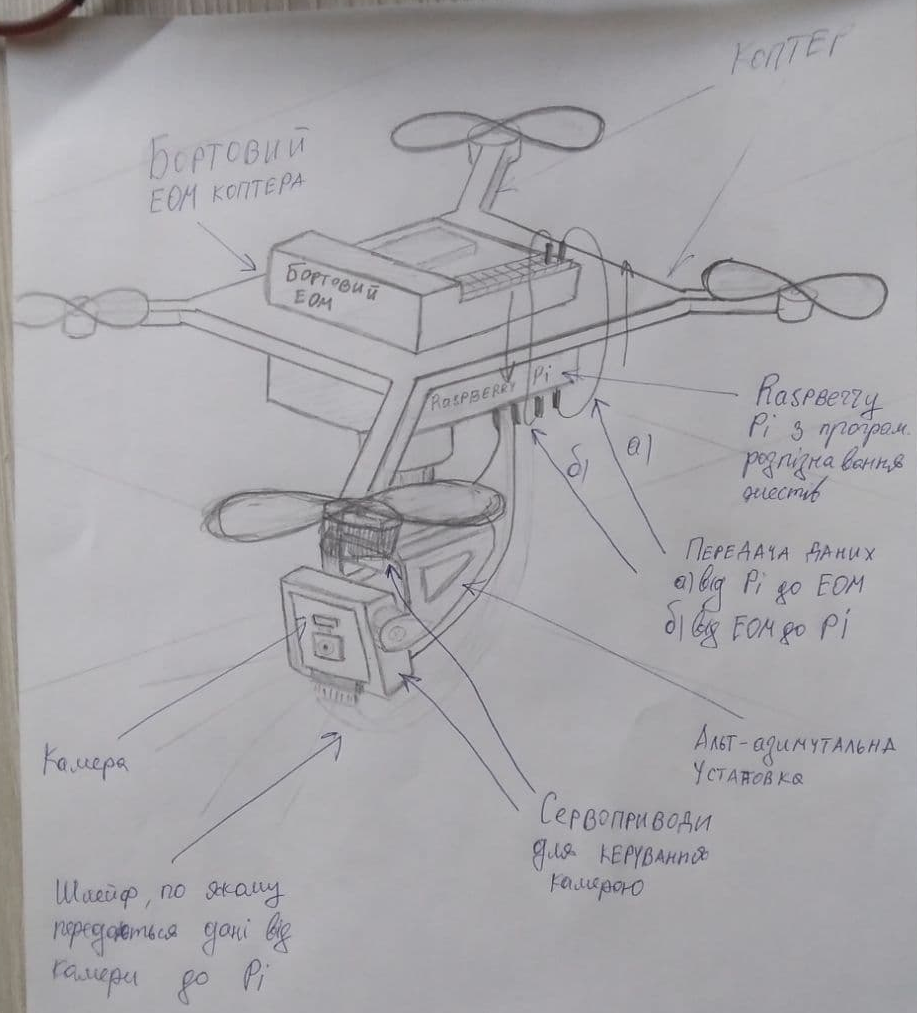 КОПТЕР
БОРТОВИЙ
ЕОМ КОПТЕРА
БОРТОВИЙ
ЕОМ
RASPBERRY Pi
RaspBerry
Pi з програм.
розпізнавання
жестів
а)
б)
ПЕРЕДАЧА ДАНИХ
а) від Pi до ЕОМ
б) від ЕОМ до Pi
Альт-азимутальна
установка
Камера
Сервоприводи
для керування
камерою
Шлейф, по якому
передаються дані від
камери до Pi